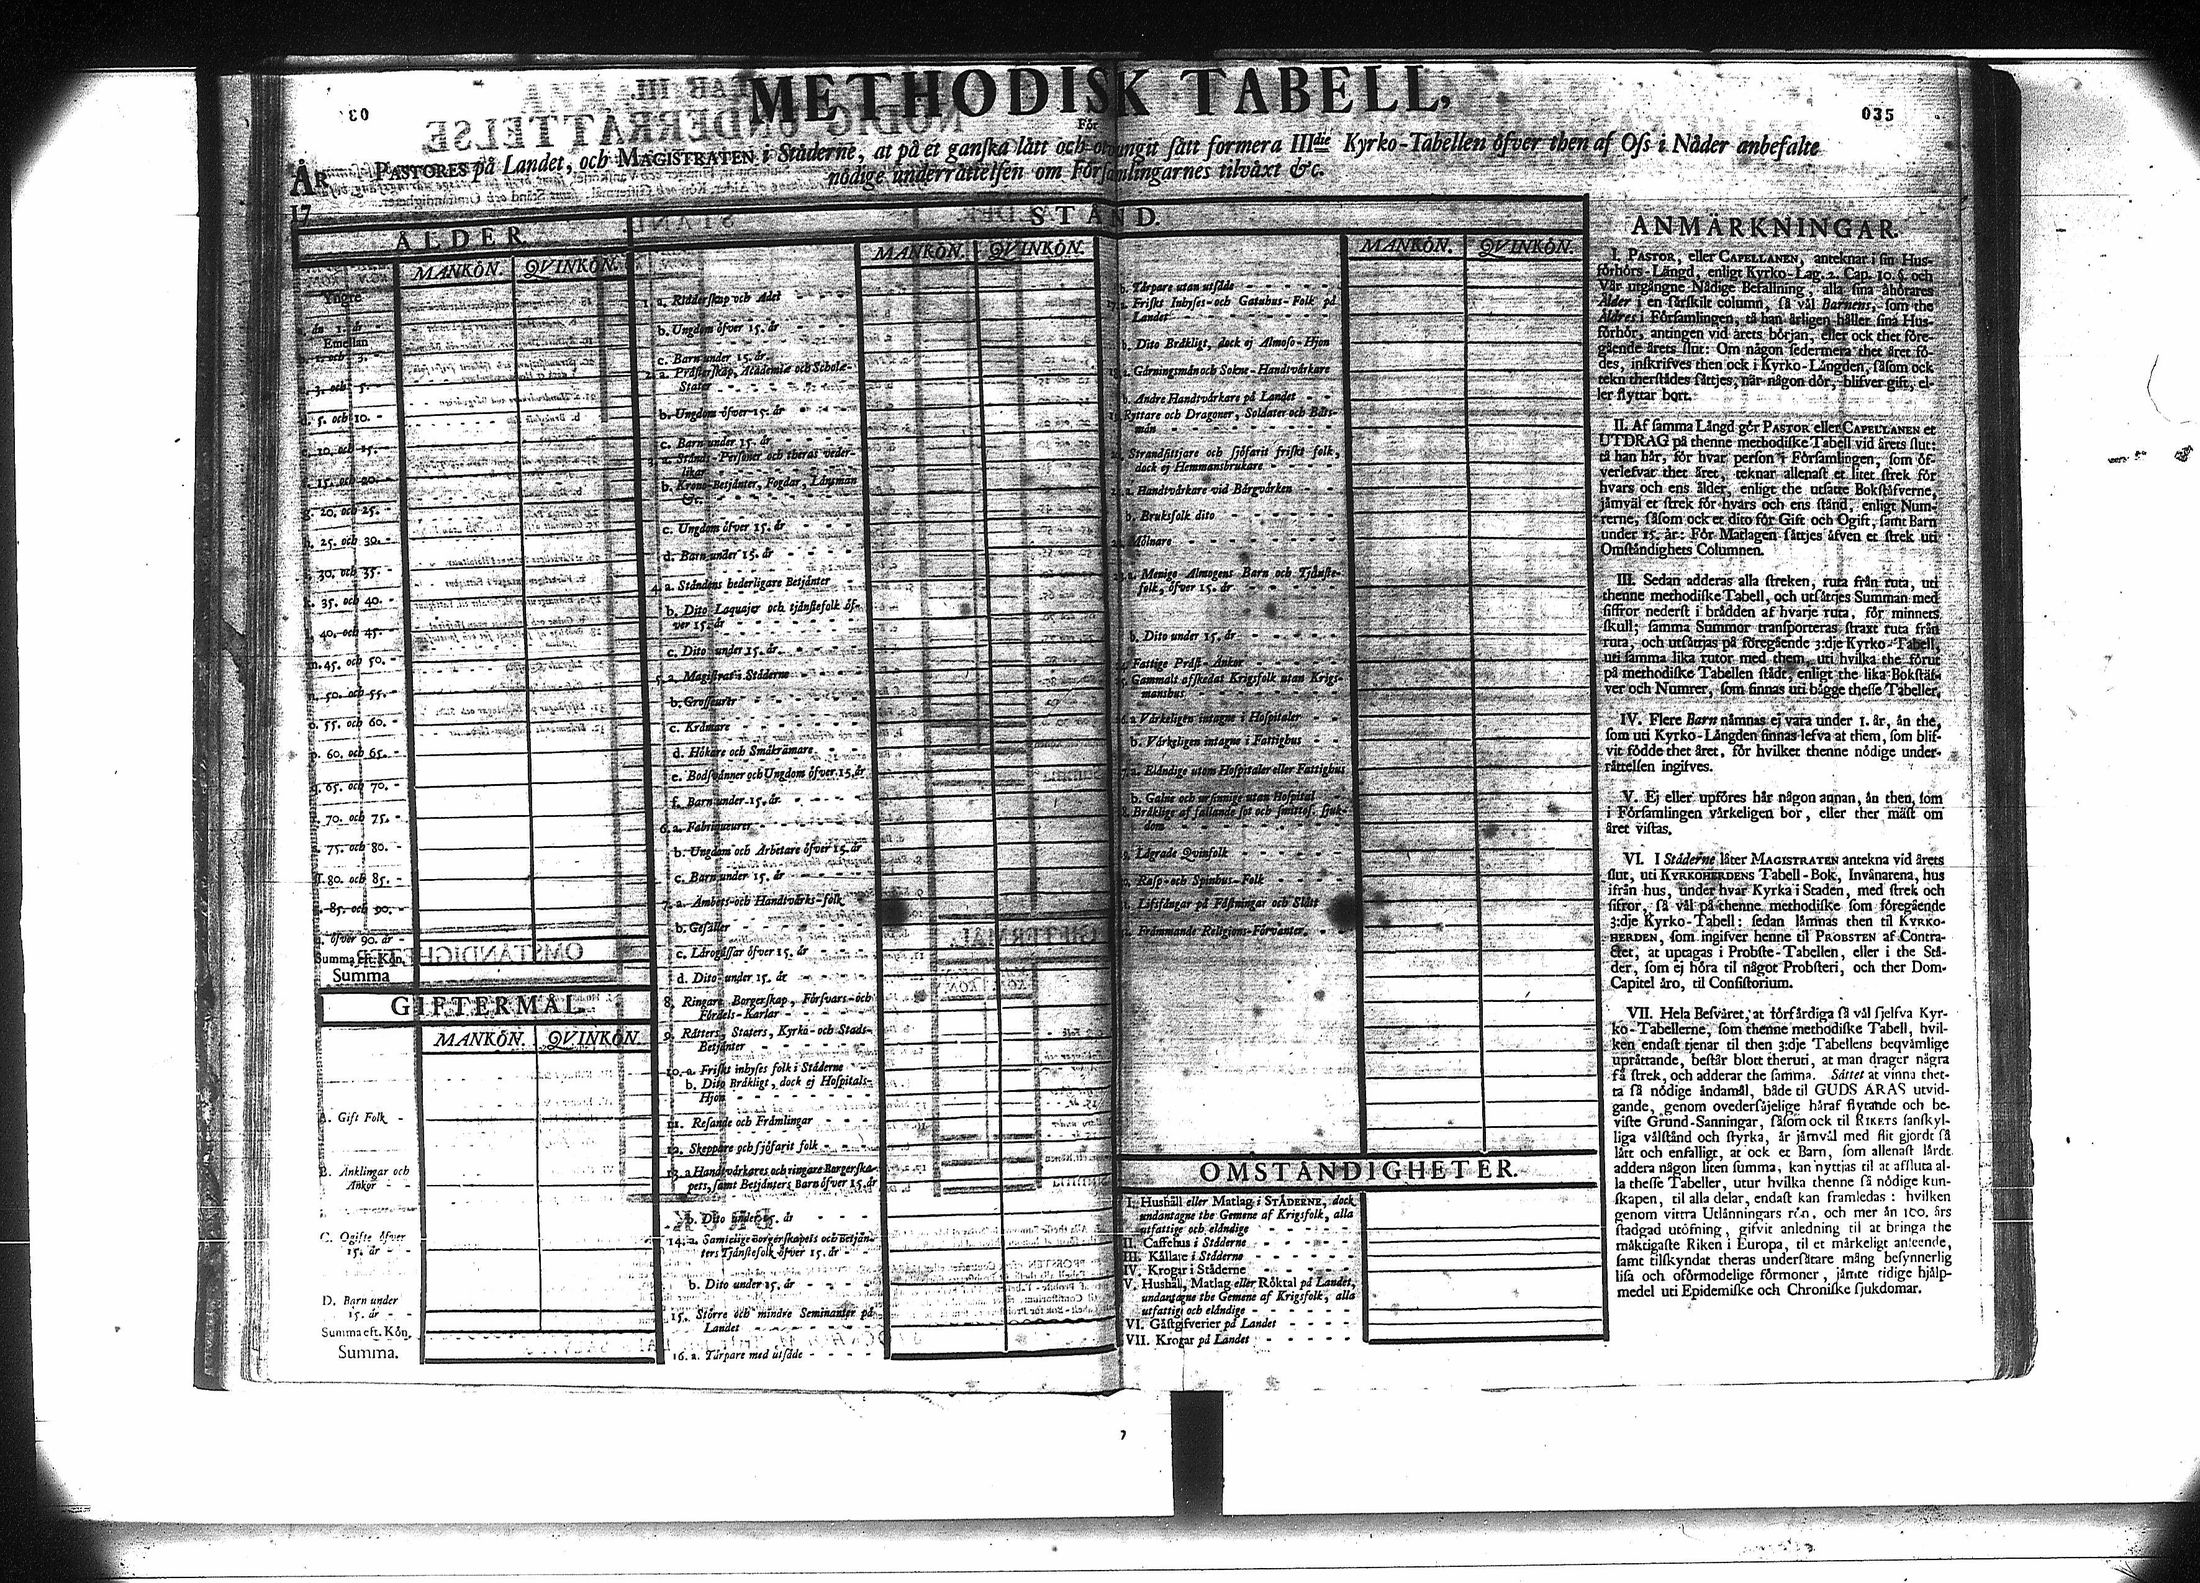 METHODISK TABELL,
035
För
PASTORES på Landet, och MAGISTRATEN i Städerne, at på et ganska lätt och otvungit sätt formera IIIdie Kyrko-Tabellen öfver then af Oss i Nåder anbefalte
nödige underrättelsen om Församlingarnes tilväxt &c.
ÅR
17
ÅLDER
MANKÖN. QVINKÖN.
Yngre
a. än 1. år -
Emellan
b. 1. och 3. -
c. 3. och 5. -
d. 5. och 10. -
e. 10. och 15. -
f. 15. och 20. -
g. 20. och 25. -
h. 25. och 30. -
i. 30. och 35. -
k. 35. och 40. -
l. 40. och 45. -
m. 45. och 50. -
n. 50. och 55. -
o. 55. och 60. -
p. 60. och 65. -
q. 65. och 70. -
r. 70. och 75. -
s. 75. och 80. -
ſſ. 80. och 85. -
t. 85. och 90. -
u. öfver 90. år -
Summa eft. Kön.
Summa
GIFTERMÅL.
MANKÖN. QVINKÖN.
A. Gift Folk -
B. Änklingar och
Änkor - -
C. Ogifte öfver
15. år - -
D. Barn under
15. år -
Summa eft. Kön.
Summa.
STÅND.
MANKÖN. QVINKÖN.
1. a. Ridderſkap och Adel
b. Ungdom öfver 15. år
c. Barn under 15. år
2. a. Präſterſkap, Academiæ och Scholæ-
Stater
b. Ungdom öfver 15. år
c. Barn under 15. år
3. a. Stånds-Perſoner och theras veder-
likar
b. Krono-Betjänter, Fogdar, Länsmän
&c.
c. Ungdom öfver 15. år
d. Barn under 15. år
4. a. Ståndens hederligare Betjänter
b. Dito Laquajer och tjänſtefolk öf-
ver 15. år
c. Dito under 15. år
5. a. Magiſtrat i Städerne
b. Groſſeurer
c. Krämare
d. Hökare och Småkrämare
e. Bodſvänner och Ungdom öfver 15. år
f. Barn under 15. år
6. a. Fabriqueurer
b. Ungdom och Arbetare öfver 15. år
c. Barn under 15. år
7. a. Ämbets-och Handtvärks-folk
b. Geſäller
c. Lärogåſſar öfver 15. år
d. Dito under 15. år
8. Ringare Borgerſkap, Förſvars-och
Fördels-Karlar
9. Rätters, Staters, Kyrko-och Stads-
Betjänter
10. a. Friſkt inhyſes folk i Städerne
b. Dito Bräkligt, dock ej Hoſpitals-
Hjon
11. Reſande och Främlingar
12. Skeppare och ſjöfarit folk
13. a Handtvärkares och ringare Borgerſka-
pets, ſamt Betjänters Barn öfver 15. år
b. Dito under 15. år
14. a. Samtelige Borgerſkapets och Betjän-
ters Tjänſtefolk öfver 15. år
b. Dito under 15. år
15. Större och mindre Seminanter på
Landet
16. a. Tärpare med utſäde
MANKÖN. QVINKÖN.
b. Tärpare utan utſäde
17. a. Friſkt Inhyſes-och Gatuhus-Folk på
Landet
b. Dito Bräkligt, dock ej Almoſo-Hjon
18. a. Gärningsmän och Sokne-Handtvärkare
b. Andre Handtvärkare på Landet
19. Ryttare och Dragoner, Soldater och Båts-
män
20. Strandſittjare och ſjöfarit friſkt folk,
dock ej Hemmansbrukare
21. a. Handtvärkare vid Bärgvärken
b. Bruksfolk dito
22. Mölnare
23. a. Menige Almogens Barn och Tjänſte-
folk, öfver 15. år
b. Dito under 15. år
24. Fattige Präſt-Änkor
25. Gammalt afſkedat Krigsfolk utan Krigs-
manshus
26. a Värkeligen intagne i Hoſpitaler
b. Värkeligen intagne i Fattighus
27. a. Eländige utom Hoſpitaler eller Fattighus
b. Galne och urſinnige utan Hoſpital
28. Bräklige af fallande ſot och ſmittoſ. ſjuk-
dom
29. Lägrade Qvinfolk
30. Raſp-och Spinhus-Folk
31. Lifsfångar på Fäſtningar och Slått
32. Främmande Religions-Förvanter.
OMSTÄNDIGHETER.
I. Hushåll eller Matlag i STÄDERNE, dock
undantagne the Gemene af Krigsfolk, alla
utfattige och eländige
II. Caffehus i Städerne
III. Källare i Städerne
IV. Krogar i Städerne
V. Hushåll, Matlag eller Röktal på Landet,
undantagne the Gemene af Krigsfolk, alla
utfattige och eländige
VI. Gäſtgifverier på Landet
VII. Krogar på Landet
ANMÄRKNINGAR.
I. PASTOR, eller CAPELLANEN, anteknar i ſin Hus-
förhörs-Längd, enligt Kyrko-Lag. 2. Cap. 10. §. och
Vår utgångne Nådige Befallning, alla ſina åhörares
Ålder i en ſärſkilt column, ſå väl Barnens, ſom the
Äldres i Förſamlingen, tå han årligen håller ſina Hus-
förhör, antingen vid årets början, eller ock thet före-
gående årets ſlut: Om någon ſedermera thet året fö-
des, inſkrifves then ock i Kyrko-Längden, ſåſom ock
tekn therſtädes ſättjes, när någon dör, blifver gift, el-
ler flyttar bort.
II. Af ſamma Längd gör PASTOR eller CAPELLANEN et
UTDRAG på thenne methodiſke Tabell vid årets ſlut:
tå han här, för hvar perſon i Förſamlingen, ſom öf-
verlefvar thet året, teknar allenaſt et litet ſtrek för
hvars och ens ålder, enligt the utſatte Bokſtäfverne,
jämväl et ſtrek för hvars och ens ſtånd, enligt Num-
rerne, ſåſom ock et dito för Gift och Ogift, ſamt Barn
under 15. år: För Matlagen ſättjes äfven et ſtrek uti
Omſtändighets Columnen.
III. Sedan adderas alla ſtreken, ruta från ruta, uti
thenne methodiſke Tabell, och utſättjes Summan med
ſiffror nederſt i brädden af hvarje ruta, för minnets
ſkull; ſamma Summor transporteras ſtraxt ruta från
ruta, och utſättjas på föregående 3:dje Kyrko-Tabell,
uti ſamma lika rutor med them, uti hvilka the förut
på methodiſke Tabellen ſtådt, enligt the lika Bokſtäf-
ver och Numrer, ſom finnas uti bägge theſſe Tabeller.
IV. Flere Barn nämnas ej vara under 1. år, än the,
ſom uti Kyrko-Längden finnas lefva at them, ſom blif-
vit födde thet året, för hvilket thenne nödige under-
rättelſen ingifves.
V. Ej eller upföres här någon annan, än then, ſom
i Förſamlingen värkeligen bor, eller ther mäſt om
året viſtas.
VI. I Städerne låter MAGISTRATEN antekna vid årets
ſlut, uti KYRKOHERDENS Tabell-Bok, Invånarena, hus
ifrån hus, under hvar Kyrka i Staden, med ſtrek och
ſifror, ſå väl på thenne methodiſke ſom föregående
3:dje Kyrko-Tabell; ſedan lämnas then til KYRKO-
HERDEN, ſom ingifver henne til PROBSTEN af Contra-
ctet, at uptagas i Probſte-Tabellen, eller i the Stä-
der, ſom ej höra til något Probſteri, och ther Dom-
Capitel äro, til Conſiſtorium.
VII. Hela Beſväret, at förfärdiga ſå väl ſjelfva Kyr-
ko-Tabellerne, ſom thenne methodiſke Tabell, hvil-
ken endaſt tjenar til then 3:dje Tabellens beqvämlige
uprättande, beſtår blott theruti, at man drager några
få ſtrek, och adderar the ſamma. Sättet at vinna thet-
ta ſå nödige ändamål, både til GUDS ÄRAS utvid-
gande, genom ovederſäjelige häraf flytande och be-
viſte Grund-Sanningar, ſåſom ock til RIKETS ſanſkyl-
liga välſtånd och ſtyrka, är jämväl med flit gjordt ſå
lätt och enfalligt, at ock et Barn, ſom allenaſt lärdt
addera någon liten ſumma, kan nyttjas til at aſluta al-
la theſſe Tabeller, utur hvilka thenne ſå nödige kun-
ſkapen, til alla delar, endaſt kan framledas: hvilken
genom vittra Utlänningars rön, och mer än 100. års
ſtadgad utöfning, gifvit anledning til at bringa the
mäktigaſte Riken i Europa, til et märkeligt anſeende,
ſamt tilſkyndat theras underſåtare mång beſynnerlig
liſa och oförmodelige förmoner, jämte tidige hjälp-
medel uti Epidemiſke och Chroniſke ſjukdomar.